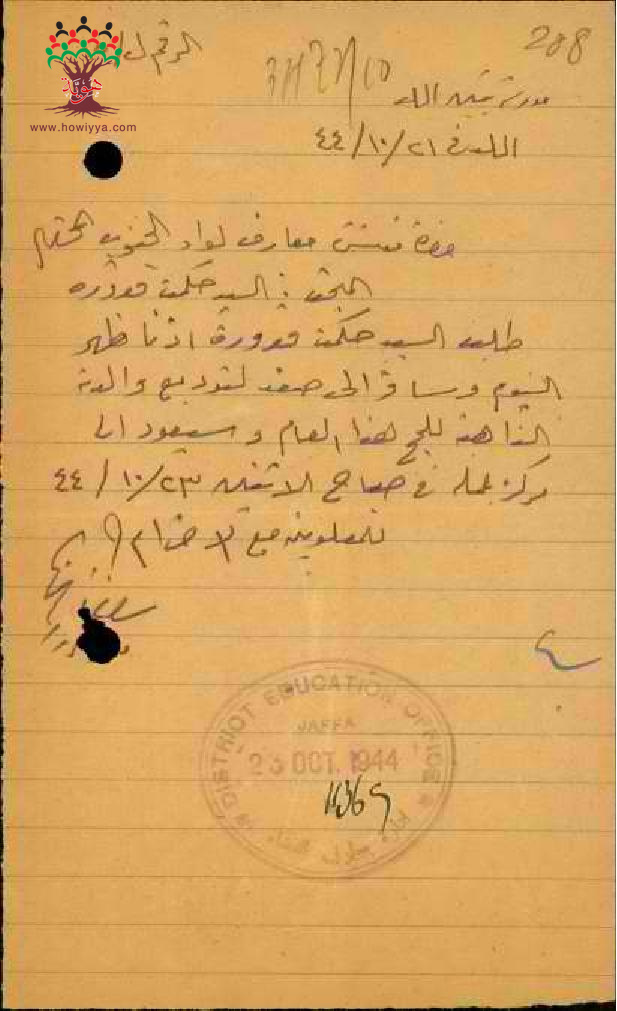 الرقم ل
208
3/137/10
هوية
www.howiyya.com
مدرسة بنين اللد
اللد في ٢١/١٠/٤٤
حضرة مفتش معارف لواء الجنوب المحترم
المبحث : السيد حكمت قدوره
طلب السيد حكمت قدورة اذنا ظهر
اليوم وسافر الى صفد لتوديع والدته
الذاهبة للحج هذا العام وسيعود الى
مركز عمله في صباح الاثنين ٢٣/١٠/٤٤
للمعلومية مع الاحترام
DISTRICT EDUCATION OFFICE
JAFFA
23 OCT. 1944